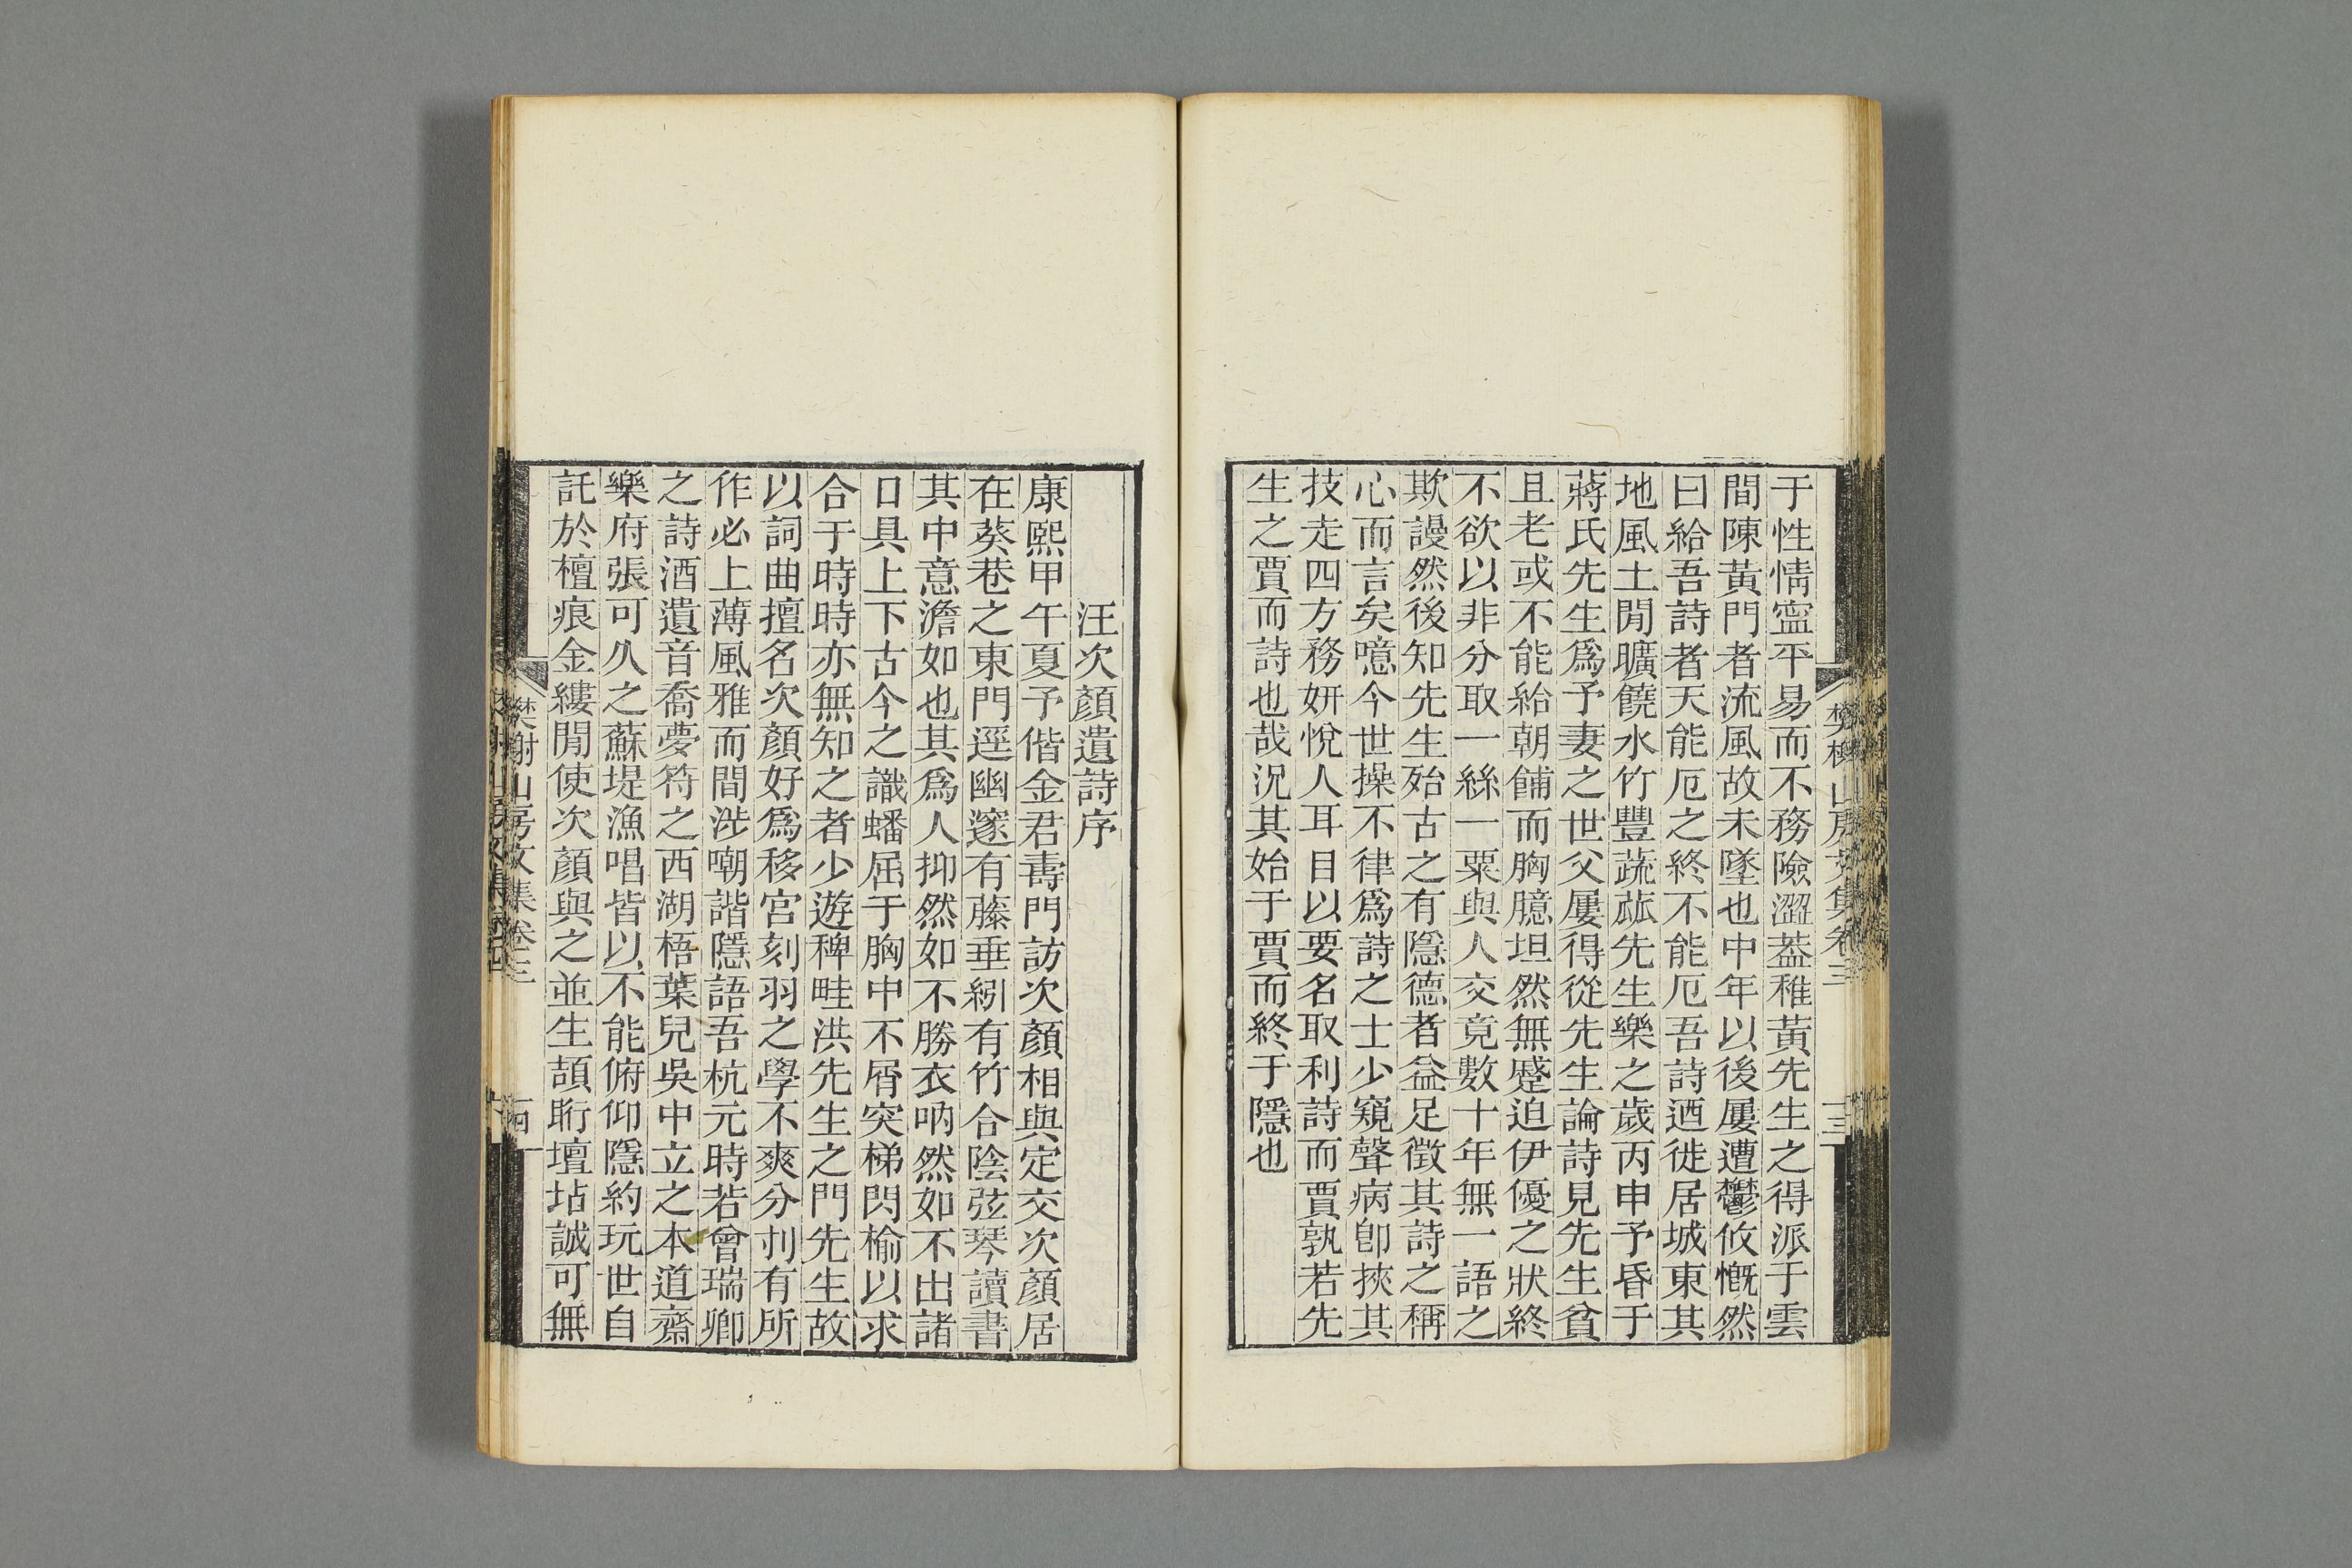 樊榭山房文集卷三
十三
于性情寍平易而不務險澀葢稚黃先生之得派于雲
間陳黃門者流風故未墜也中年以後屢遭鬱攸慨然
曰給吾詩者天能厄之終不能厄吾詩迺徙居城東其
地風土閒曠饒水竹豐蔬蓏先生樂之歲丙申予昏于
蔣氏先生爲予妻之世父屢得從先生論詩見先生貧
且老或不能給朝餔而胸臆坦然無蹙迫伊優之狀終
不欲以非分取一絲一粟與人交竟數十年無一語之
欺謾然後知先生殆古之有隱德者益足徵其詩之稱
心而言矣噫今世操不律爲詩之士少窺聲病卽挾其
技走四方務妍悅人耳目以要名取利詩而賈孰若先
生之賈而詩也哉況其始于賈而終于隱也
汪次顏遺詩序
康熙甲午夏予偕金君壽門訪次顏相與定交次顏居
在葵巷之東門逕幽邃有藤垂紖有竹合陰弦琴讀書
其中意澹如也其爲人抑然如不勝衣吶然如不出諸
口具上下古今之識蟠屈于胸中不屑突梯閃榆以求
合于時時亦無知之者少遊稗畦洪先生之門先生故
以詞曲擅名次顏好爲移宮刻羽之學不爽分刌有所
作必上薄風雅而間涉嘲諧隱語吾杭元時若曾瑞卿
之詩酒遺音喬夢符之西湖梧葉兒吳中立之本道齋
樂府張可久之蘇堤漁唱皆以不能俯仰隱約玩世自
託於檀痕金縷閒使次顏與之並生頡䀪壇坫誠可無
樊榭山房文集卷三
十四